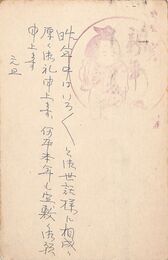 昨年中はいろ〱と御世話様に相成り
厚く御礼申上ます 何卒本年も宜敷く御願
申上ます
元旦